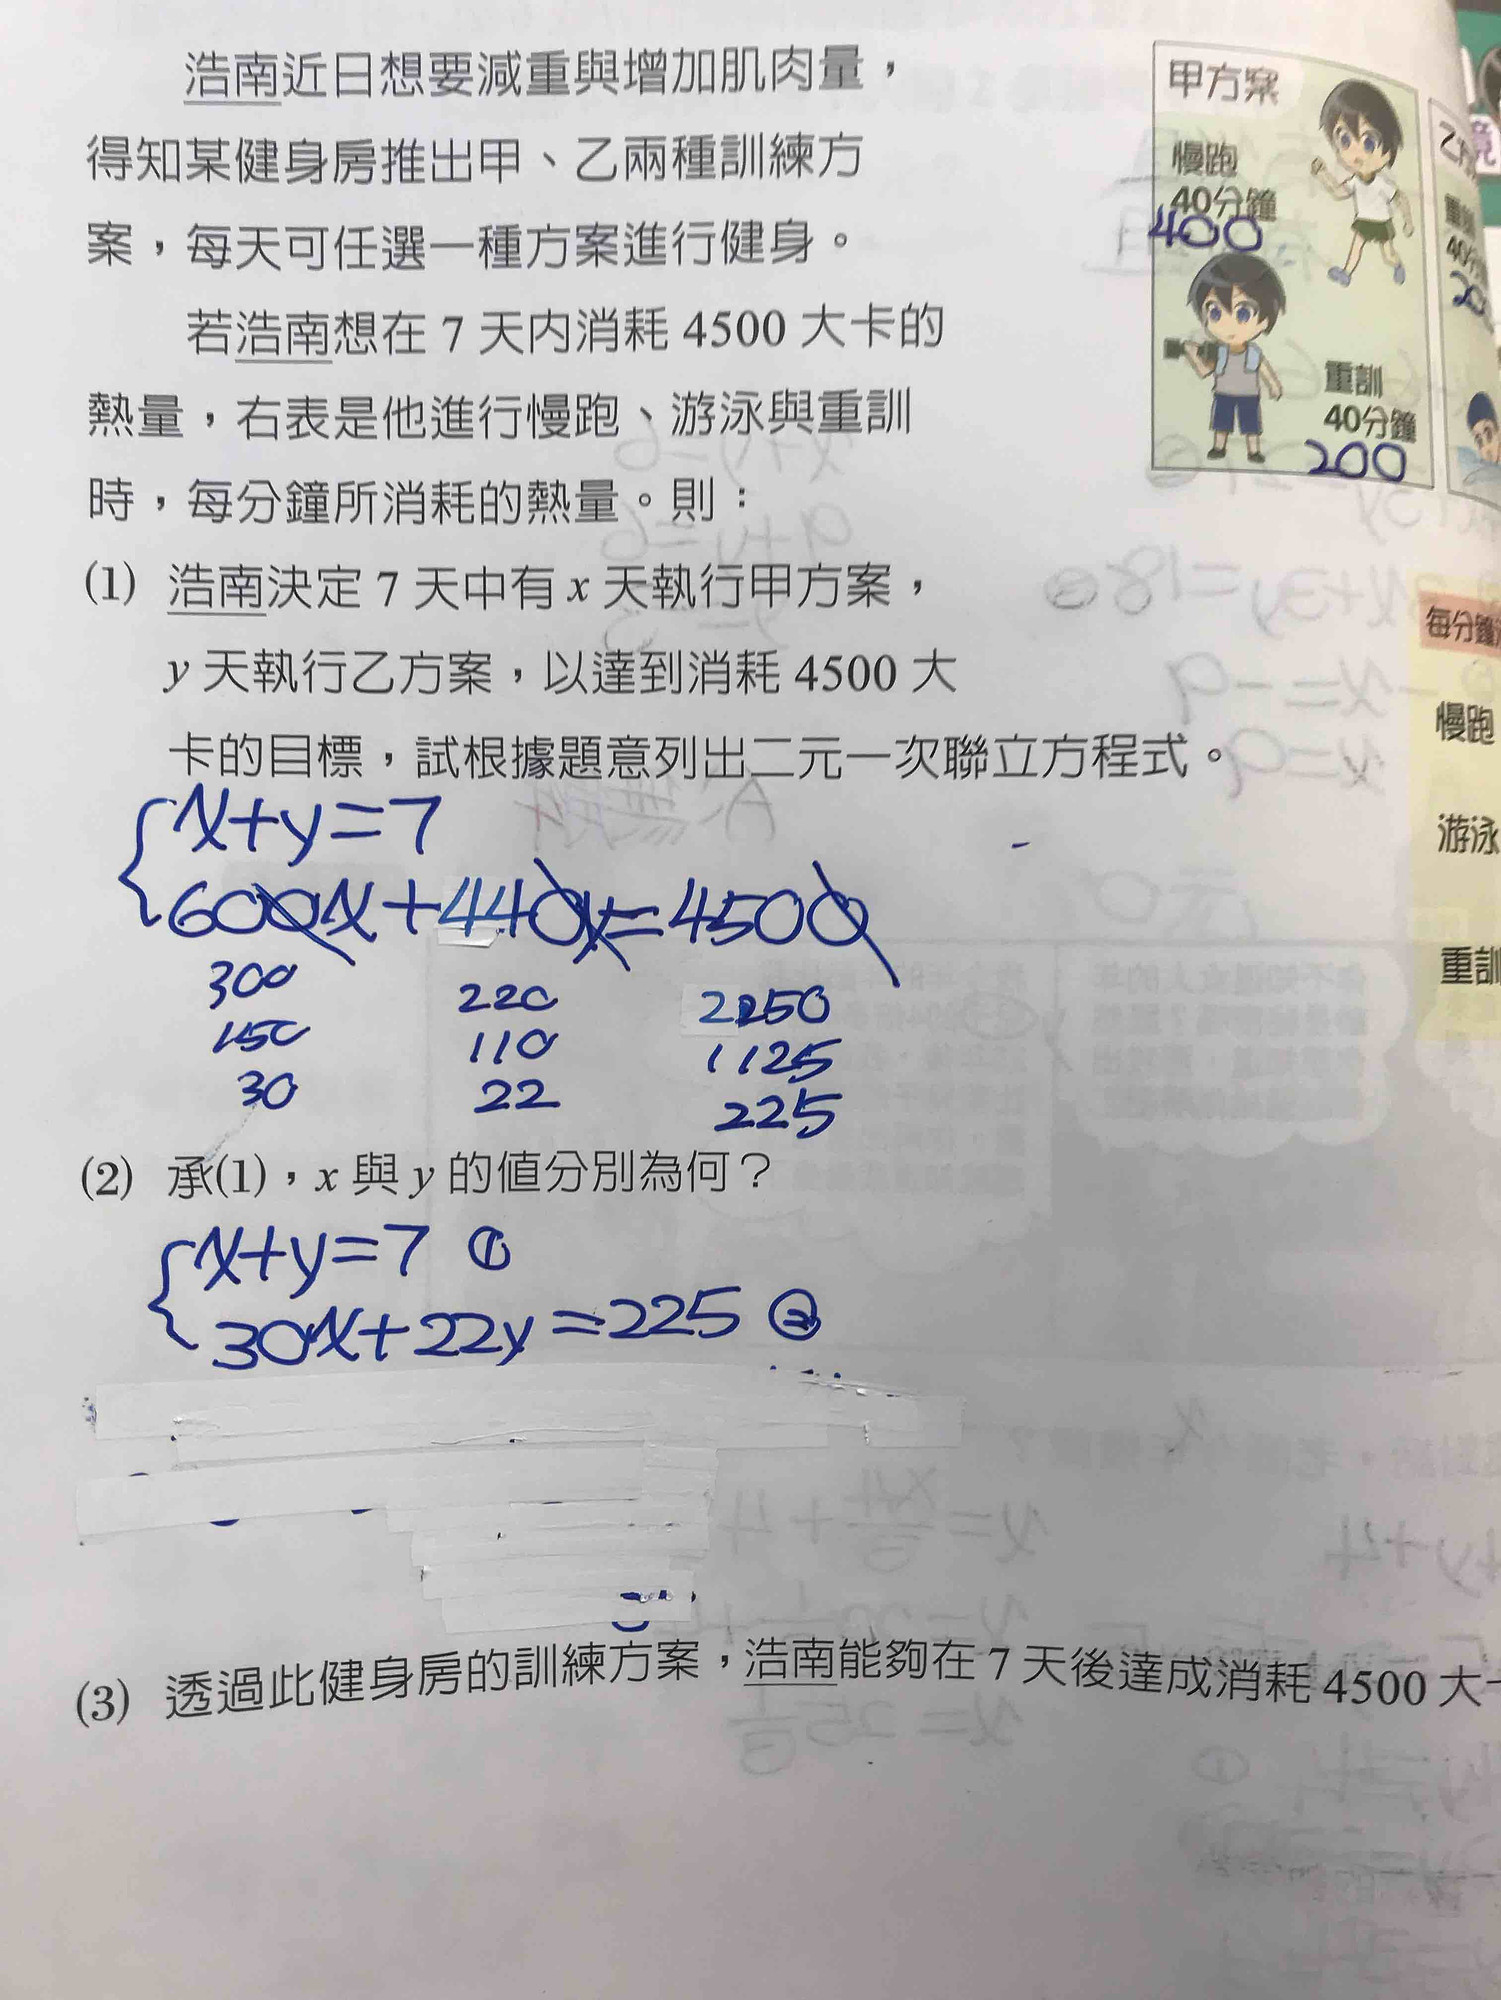 浩南近日想要減重與增加肌肉量，
得知某健身房推出甲、乙兩種訓練方
案，每天可任選一種方案進行健身。
若浩南想在 7 天內消耗 4500 大卡的
熱量，右表是他進行慢跑、游泳與重訓
時，每分鐘所消耗的熱量。則：
(1) 浩南決定 7 天中有 x 天執行甲方案，
y 天執行乙方案，以達到消耗 4500 大
卡的目標，試根據題意列出二元一次聯立方程式。
x+y=7
600x+440y=4500
300 220 2250
150 110 1125
30 22 225
(2) 承(1)，x 與 y 的值分別為何？
x+y=7 ①
30x+22y=225 ②
(3) 透過此健身房的訓練方案，浩南能夠在 7 天後達成消耗 4500 大
甲方案
慢跑
40分鐘
400
重訓
40分鐘
200
每分鐘
慢跑
游泳
重訓